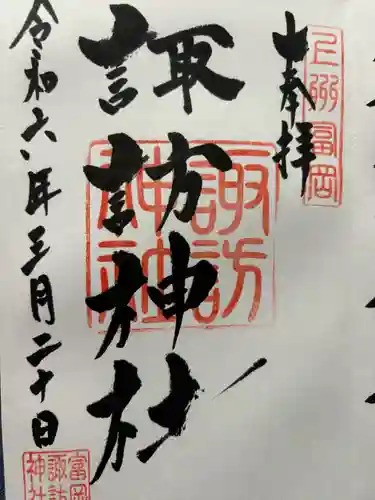 上州富岡
奉拝
諏訪神社
諏訪神社
令和六年三月二十日
富岡
諏訪
神社